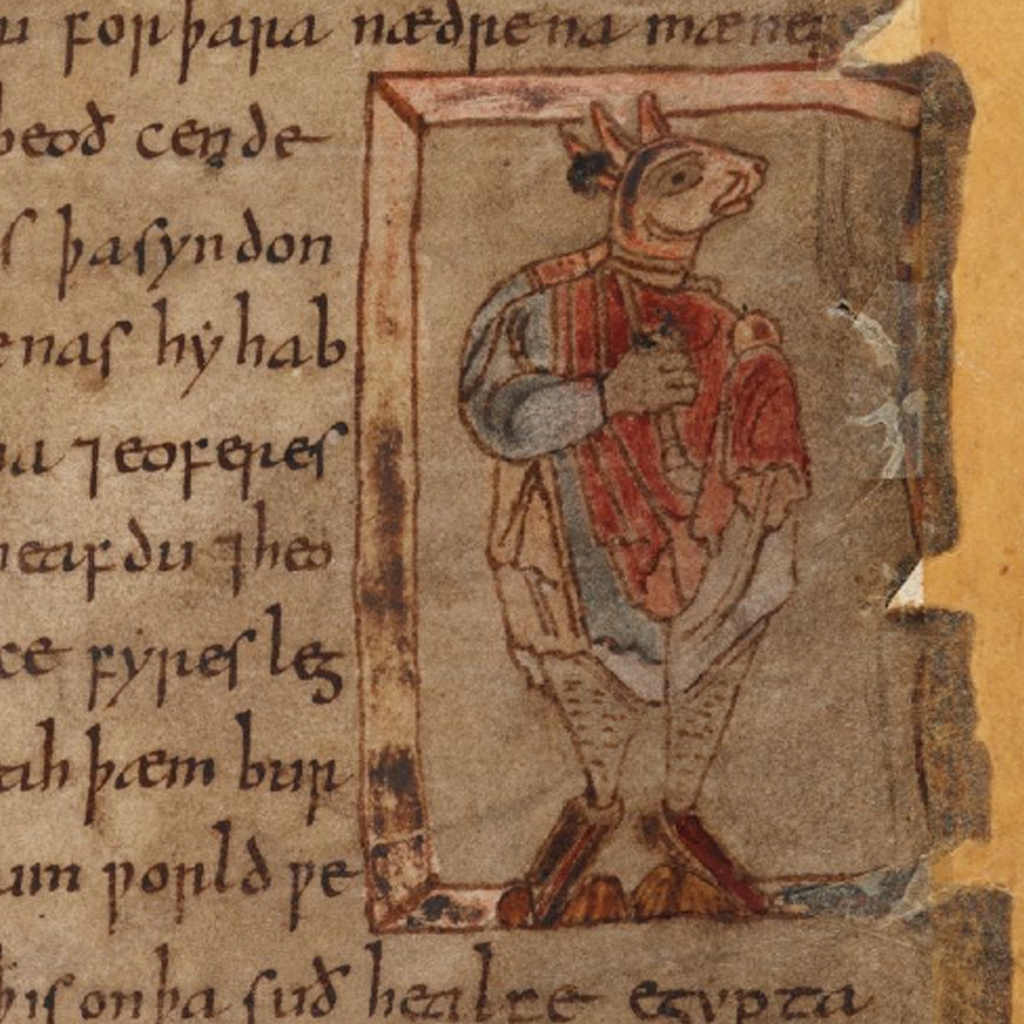 forþara nædrena mænego
beoð cende
s þasyndon
enas hy hab
na ⁊ eoferes
heafdu ⁊ heo
ce fyres leg
eah þæm bur
um ƿoruld ƿe
þis on þa suð healfe egypta